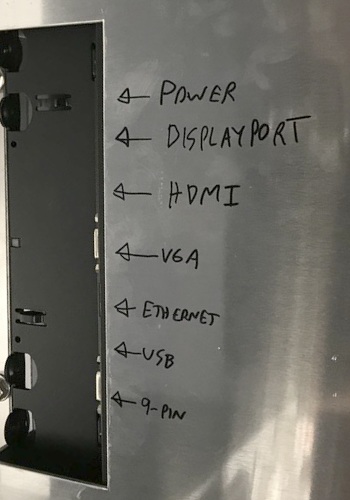 POWER
DISPLAYPORT
HDMI
VGA
ETHERNET
USB
9-PIN